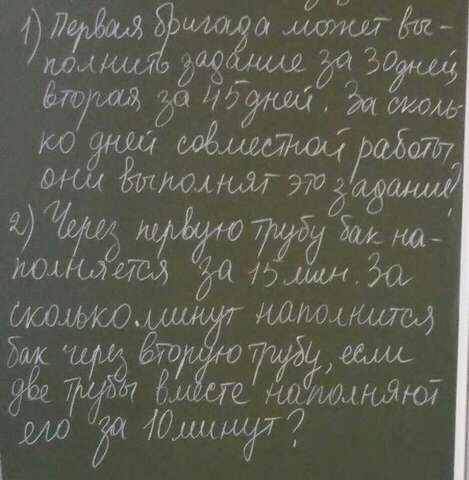 1) Первая бригада может вы-
полнить задание за 30 дней,
вторая за 45 дней. За сколь-
ко дней совместной работы
они выполнят это задание?
2) Через первую трубу бак на-
полняется за 15 мин. За
сколько минут наполнится
бак через вторую трубу, если
две трубы вместе наполняют
его за 10 минут?